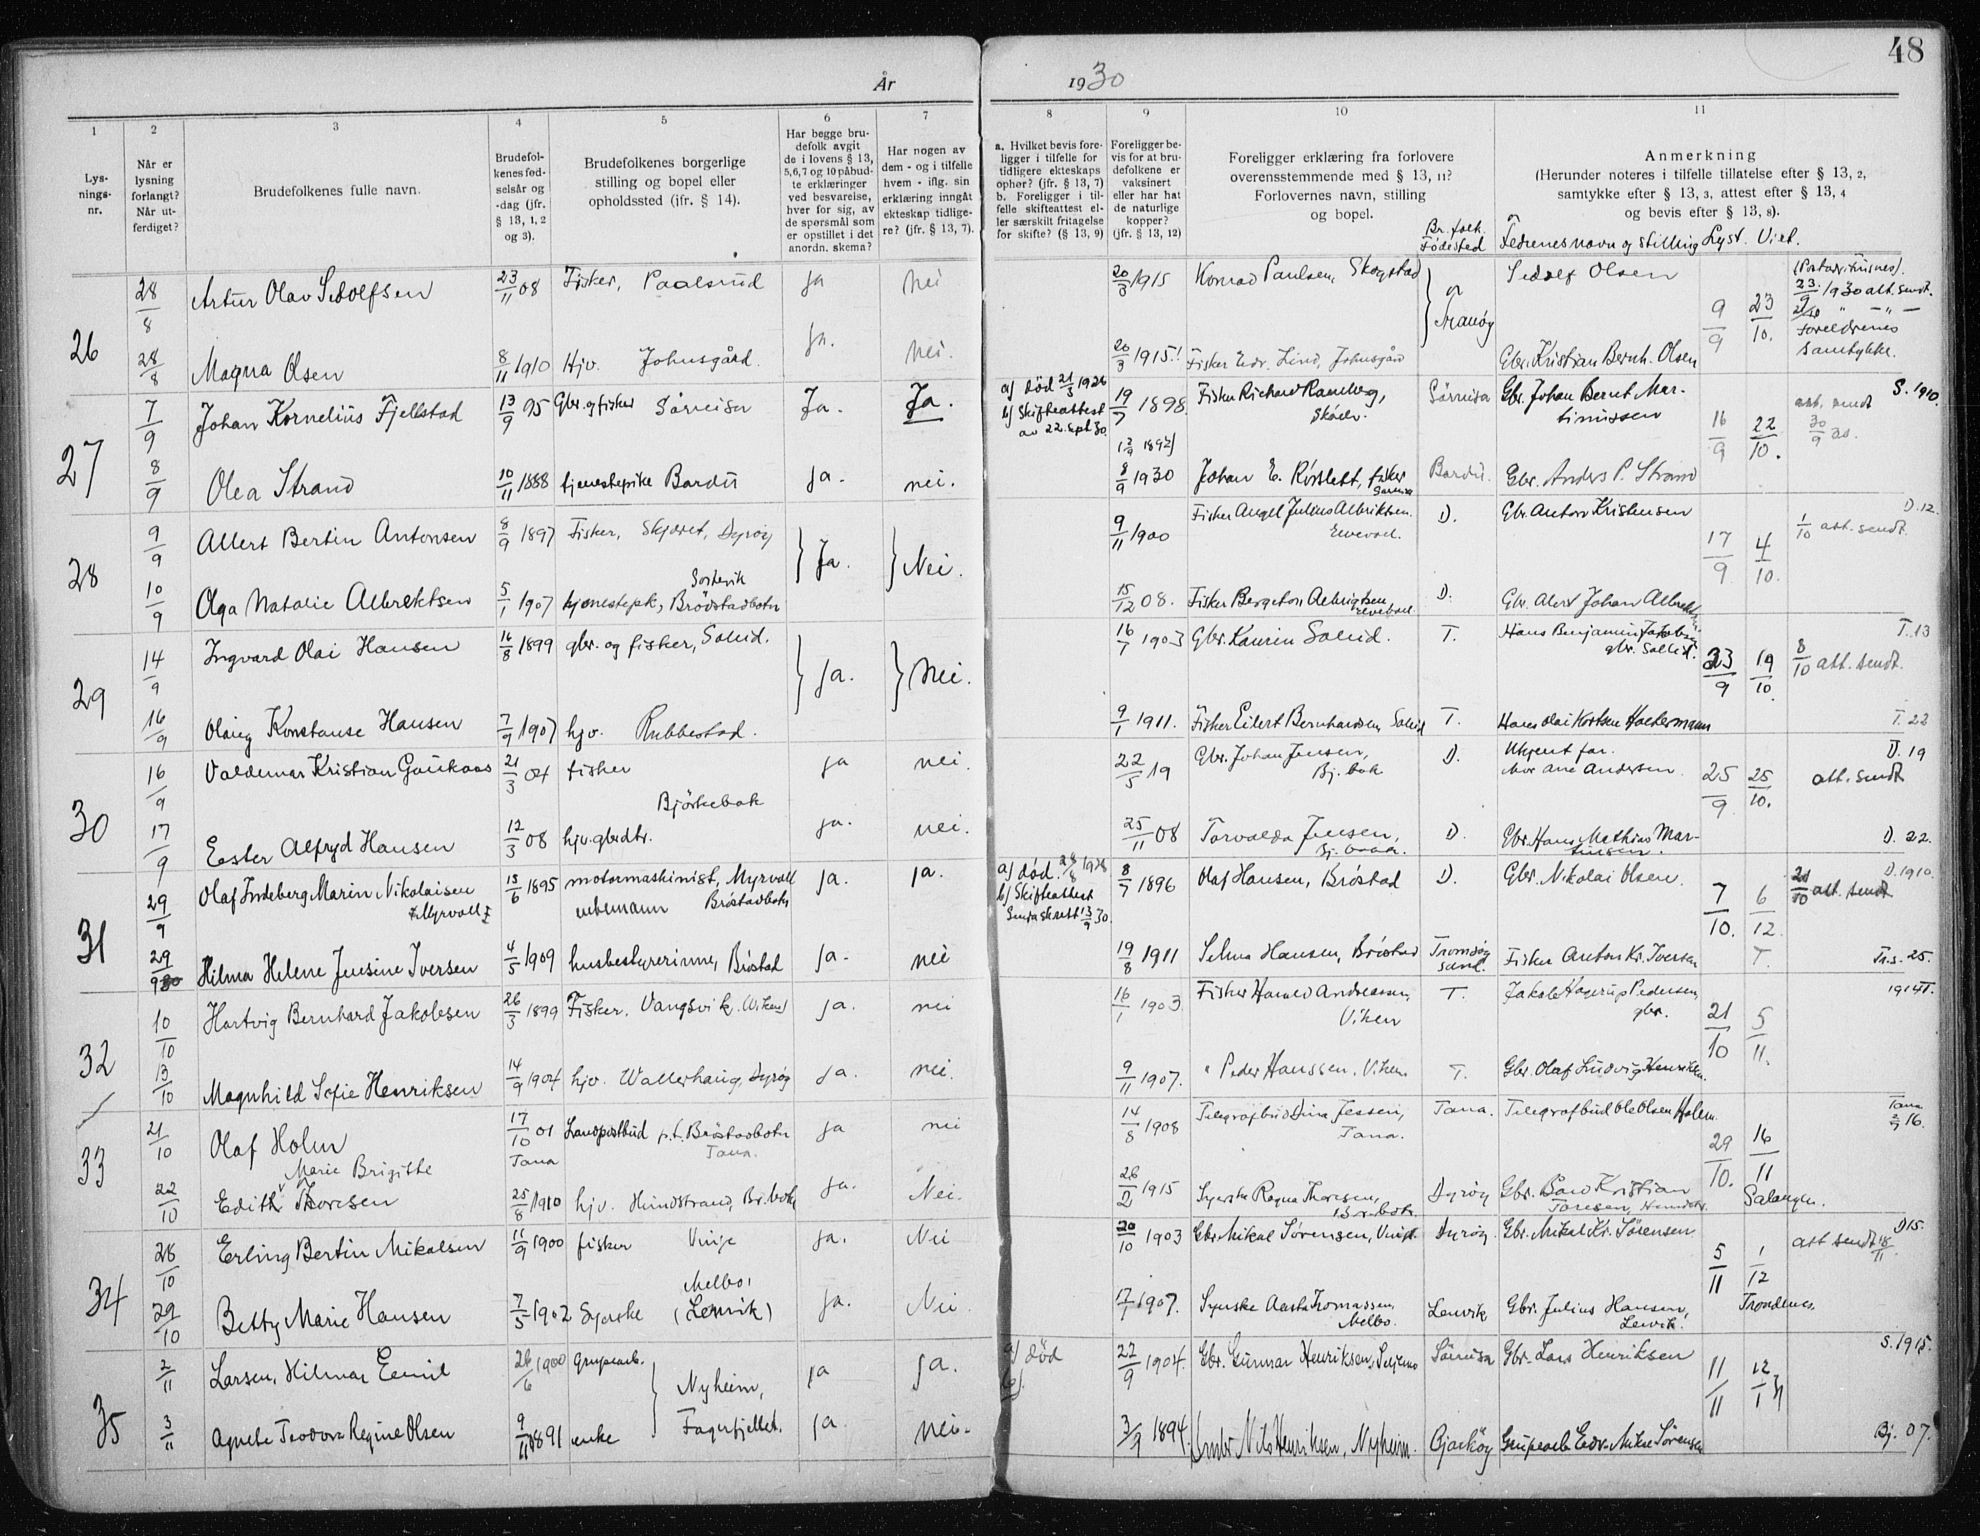 48
År 1930
1 2 3 4 5 6 7 8 9 10 11
Lys-
nings-
nr.
Når er
lysning
forlangt?
Når ut-
ferdiget?
Brudefolkenes fulle navn.
Brudefol-
kenes fød-
selsår og
-dag (jfr.
§ 13, 1, 2
og 3).
Brudefolkenes borgerlige
stilling og bopel eller
opholdssted (jfr. § 14).
Har begge bru-
defolk avgit
de i lovens § 13,
5, 6, 7 og 10 påbud-
te erklæringer
ved besvarelse,
hver for sig, av
de spørsmål som
er opstillet i det
anordn. skema?
Har nogen av
dem - og i tilfelle
hvem - iflg. sin
erklæring inngått
ekteskap tidlige-
re? (jfr. § 13, 7).
a. Hvilket bevis fore-
ligger i tilfelle for
tidligere ekteskaps
ophør? (jfr. § 13, 7)
b. Foreligger i til-
felle skifteattest el-
ler særskilt fritagelse
for skifte? (§ 13, 9)
Foreligger be-
vis for at bru-
defolkene er
vaksinert
eller har hat
de naturlige
kopper?
(jfr. § 13, 12)
Foreligger erklæring fra forlovere
overensstemmende med § 13, 11?
Forlovernes navn, stilling
og bopel.
Br. folk.
Fødested
Anmerkning
(Herunder noteres i tilfelle tillatelse efter § 13, 2,
samtykke efter § 13, 3, attest efter § 13, 4
og bevis efter § 13, 8).
Fedrenes navn og stilling Lyst. Viet.
26 28/8 Artur Olav Sedolfsen 23/11 08 Fisker, Paalsrud ja nei 20/3 1915 Konrad Paulsen, Skogstad Sedolf Olsen 9/9 23/10. 23/9 1930 att. sendt.
Foreldrenes
samtykke.
28/8 Magna Olsen 8/11 1910 Hjv. Johnsgård. ja. nei. 20/3 1915! Fisker Edv. Lind, Johnsgård Gbr. Kristian Bernh. Olsen
27 7/9 Johan Kornelius Fjellstad 13/9 95 Gbr. og fisker Sørreisa Ja. Ja. a) død 21/3 1926
b) Skifteattest
av 22. sept 30. 19/7 1898. Fisker Richard Ramberg,
Skøelv. Sørreisa Gbr. Johan Bernt Mar-
tinussen 16/9 22/10. att. sendt
30/9 30. S. 1910.
8/9 Olea Strand 10/11 1888 tjenestepike Bardu ja. nei. 8/9 1930 Johan E. Kirslett, fisker
Bardu. Gbr. Anders P. Strand
28 9/9 Albert Bertin Antonsen 8/9 1897 Fisker, Skjævet, Dyrøy Ja. Nei. 9/11 1900 Fisker Angel Julius Albriktsen.
Elvevoll. D. Gbr. Anton Kristensen 17/9 4/10. 1/10 att. sendt. D. 12.
10/9 Olga Natalie Albrektsen 5/1 1907 tjenestepk, Brødstadbotn 15/12 08. Fisker Bergeton Albrigtsen
Elvevoll D. Gbr. Johan Albrektsen
29 14/9 Ingvard Olai Hansen 16/8 1899 gbr. og fisker, Sollid. Ja. Nei. 16/7 1903 Gbr. Kaurin Sollid. T. Hans Benjamin Jakobsen
gbr. Sollid. 23/9 19/10 8/10 att. sendt. T. 13
16/9 Olaug Konstanse Hansen 7/9 1907 hjv. Rubbestad. 9/1 1911. Fisker Eilert Bernhardsen, Sollid T. Hans Olai Kortsen Holtermann T. 22
30 16/9 Valdemar Kristian Gaukaas 21/3 04 fisker
Bjørkebak ja nei. 22/5 19 Gbr. Johan Jensen,
Bj. bak D. Ukjent far.
Mor Ane Andersen. 25/9 25/10. att. sendt D. 19
17/9 Ester Alfryd Hansen 12/3 08 hjv. gbrdtr. ja. nei. 25/11 08 Torvalda Jensen, D. Gbr. Hans Mathias Mar-
tinsen. D. 22.
31 29/9 Olaf Indeberg Marin Nikolaisen
Myrvoll 13/6 1895 motormaskinist, Myrvoll
enkemann Brøstadbotn ja. ja. a) død. 28/8 1928
b) Skifteattest
Senja skrett 13/9 30. 8/7 1896 Olaf Hansen, Brøstad D. Gbr. Nikolai Olsen. 7/10. 6/12. 20/10 att. sendt D. 1910.
29/9 Hilma Helene Jensine Iversen 4/5 1909 husbestyrerinne, Brøstad ja. nei 19/8 1911 Selma Hansen, Brøstad Tromsøy
sund. Fisker Anton Kr. Iversen T. Tr.s. 25.
32 10/10 Hartvig Bernhard Jakobsen 26/3 1899 Fisker, Vangsvik. (Viken) ja. nei 16/1 1903 Fisker Harald Andreassen,
Viken T. Jakob Hagerup Pedersen,
gbr. 21/10 5/11. 1914 T.
13/10 Magnhild Sofie Henriksen 14/9 1904 hjv. Wallerhaug, Dyrøy ja. nei. 9/11 1907. " Peder Hanssen, Viken T. Gbr. Olaf Ludvig Henriksen.
33 21/10 Olaf Holm 17/10 01
Tana Landpostbud p.t. Brøstadbotn
Tana. ja nei 14/8 1908 Telegrafbud Dina Jessen,
Tana. Tana. Telegrafbud Ole Olsen Holm. 29/10. 16/11 Tana
2/7 16.
22/10 Edith Marie Brigitte Thoresen 25/8 1910 hjv. Hundstrand, Br. botn ja. Nei. 26/2 1915 Syerske Ragna Thoresen,
Br. botn. Dyrøy Gbr. Bård Kristian
Toresen, Hundstr. Salangen.
34 28/10 Erling Bertin Mikalsen 11/9 1900 fisker Vinje ja. Nei 20/10 1903 Gbr. Mikal Sørensen, Vinje. Dyrøy. Gbr. Mikal Kr. Sørensen 5/11 1/12 att sendt 18/11. D 15.
29/10 Betty Marie Hansen 7/5 1902 Syerske Melbo,
(Lenvik) ja. Nei 17/7 1907. Syerske Aasta Tomassen,
Melbo. Lenvik Gbr. Julius Hansen,
Lenvik. Trondenes.
35 2/11 Larsen, Hilmar Emil 26/6 1900 Grupearb. Nyheim,
Fagerfjellet. ja ja. a) død
b). 22/9 1904. Gbr. Gunnar Henriksen, Sørreisa Gbr. Lars Henriksen 11/11 12/1 31 S. 1915.
3/11 Agnete Teodora Regine Olsen 9/11 1891 enke ja. nei. 3/9 1894. Nils Henriksen, Nyheim. Bjarkøy Grupearb. Edv. Mikal Sørensen Bj. 07.